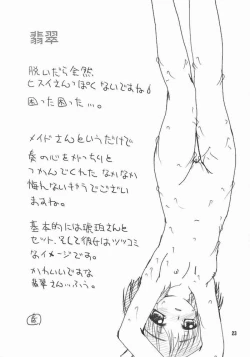 翡翠
脱いだら全然
ヒスイさんっぽくないですね
困った困った…。
メイドさんというだけで
奥の心をがっちりと
つかんでくれたなかなか
侮んないキャラでござい
ますね。
基本的には琥珀さんと
セット、そして彼女はツッコミ
なイメージです。
かわいいですな
翡翠さん…ふう。
23